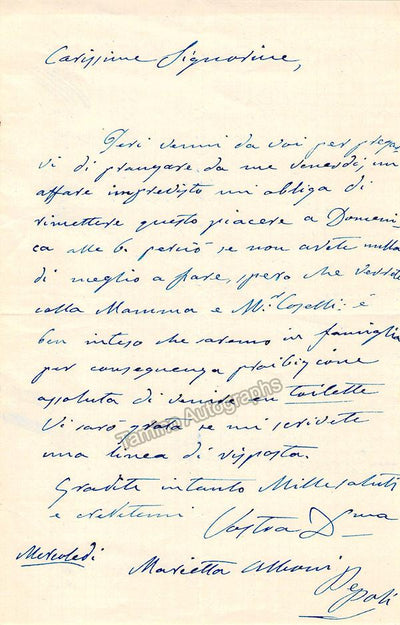 Carissime Signorine,
Ieri venni da voi per pregar
vi di pranzare da me Venerdi, un
affare imprevisto mi obliga di
rimettere questo piacere a Domeni
ca alle 6 perciò se non avete nulla
di meglio a fare, spero che verrete
colla Mamma e M.r Coselli: é
ben inteso che saremo in famiglia
per conseguenza proibizione
assoluta di venire en toilette
Vi sarò grata se mi scrivete
una linea di risposta.
Gradite intanto Mille saluti
e credetemi
Vostra D.ma
Mercoledi Marietta Alboni Pepoli
Tamino Autographs